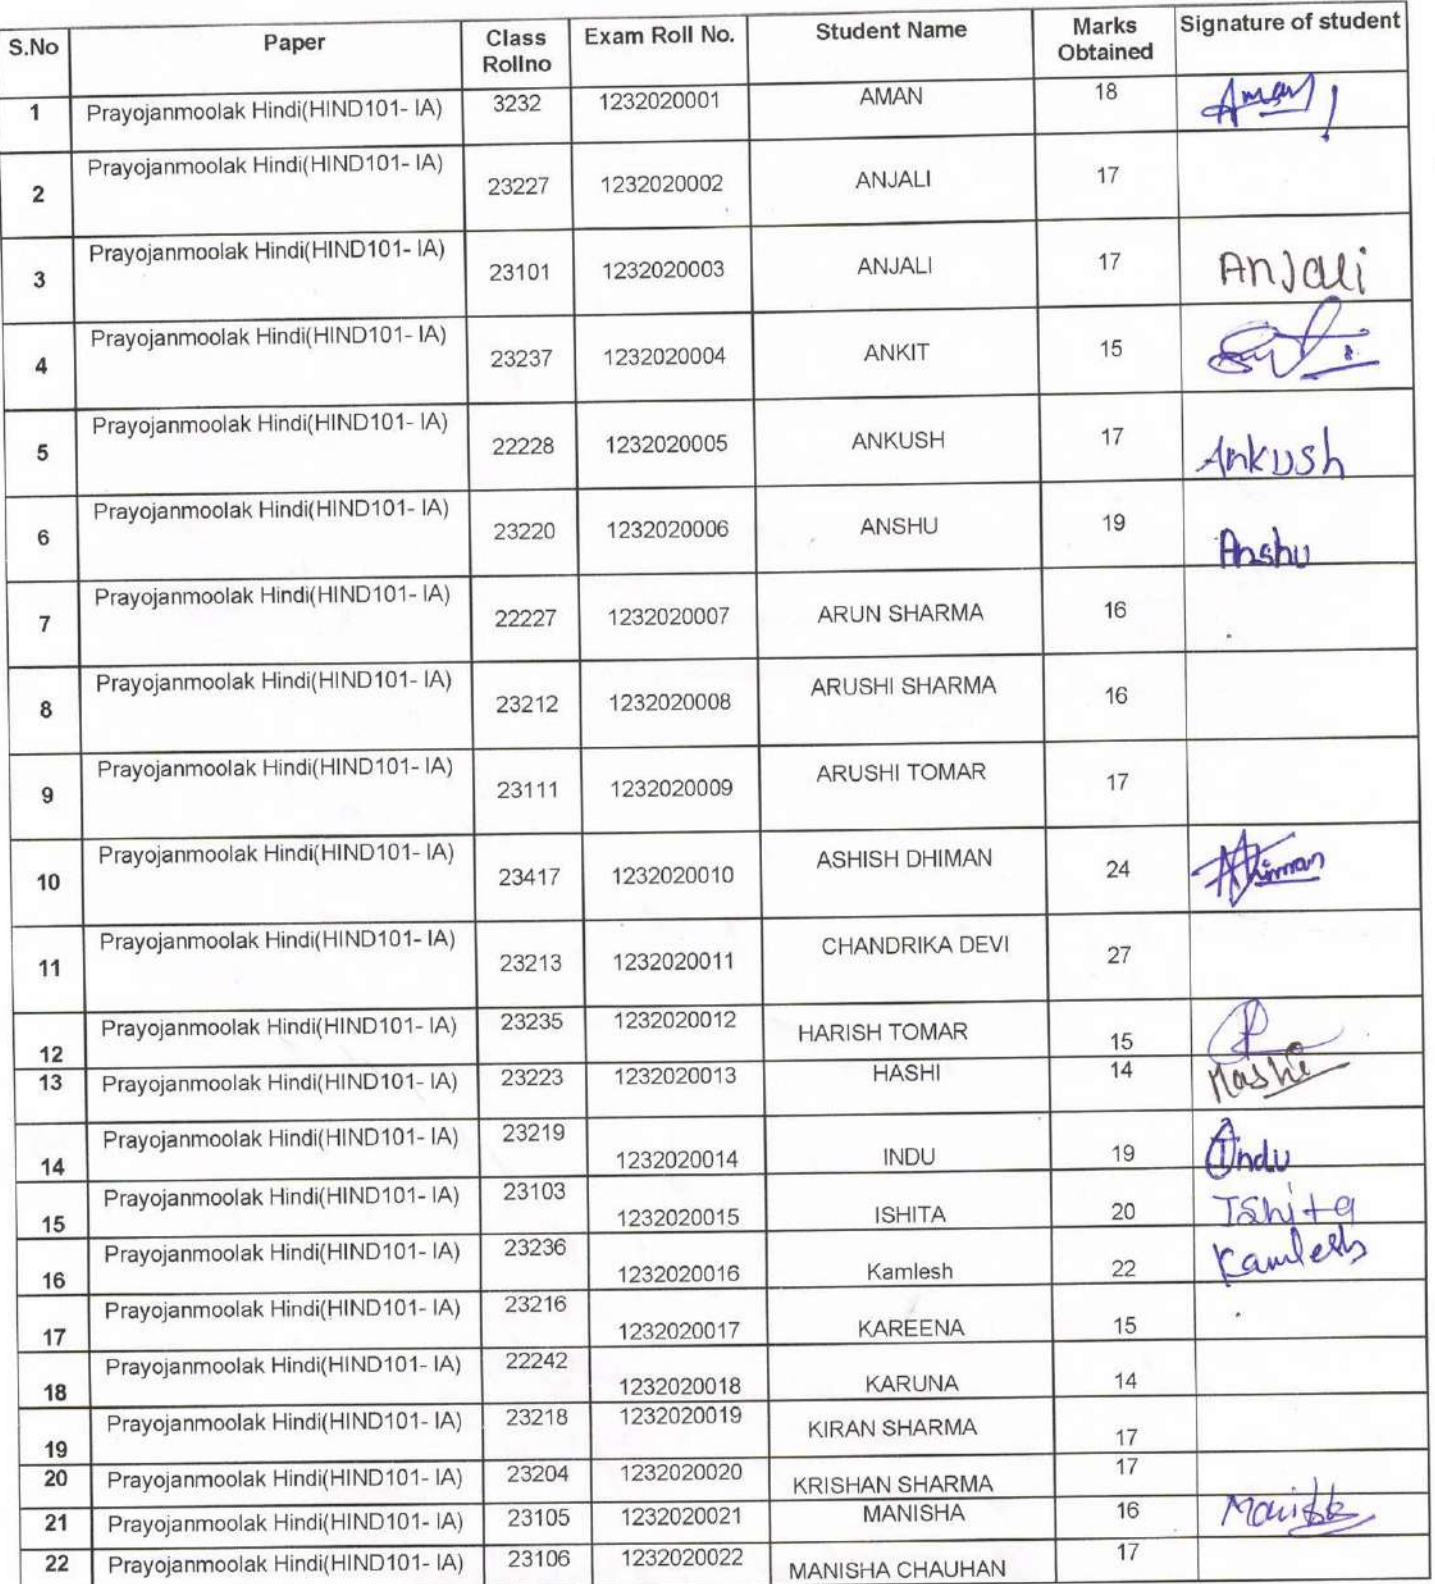 S.No Paper Class Rollno Exam Roll No. Student Name Marks Obtained Signature of student
1 Prayojanmoolak Hindi(HIND101- IA) 3232 1232020001 AMAN 18 Aman
2 Prayojanmoolak Hindi(HIND101- IA) 23227 1232020002 ANJALI 17
3 Prayojanmoolak Hindi(HIND101- IA) 23101 1232020003 ANJALI 17 Anjali
4 Prayojanmoolak Hindi(HIND101- IA) 23237 1232020004 ANKIT 15
5 Prayojanmoolak Hindi(HIND101- IA) 22228 1232020005 ANKUSH 17 Ankush
6 Prayojanmoolak Hindi(HIND101- IA) 23220 1232020006 ANSHU 19 Anshu
7 Prayojanmoolak Hindi(HIND101- IA) 22227 1232020007 ARUN SHARMA 16
8 Prayojanmoolak Hindi(HIND101- IA) 23212 1232020008 ARUSHI SHARMA 16
9 Prayojanmoolak Hindi(HIND101- IA) 23111 1232020009 ARUSHI TOMAR 17
10 Prayojanmoolak Hindi(HIND101- IA) 23417 1232020010 ASHISH DHIMAN 24
11 Prayojanmoolak Hindi(HIND101- IA) 23213 1232020011 CHANDRIKA DEVI 27
12 Prayojanmoolak Hindi(HIND101- IA) 23235 1232020012 HARISH TOMAR 15
13 Prayojanmoolak Hindi(HIND101- IA) 23223 1232020013 HASHI 14 Hashi
14 Prayojanmoolak Hindi(HIND101- IA) 23219 1232020014 INDU 19 Indu
15 Prayojanmoolak Hindi(HIND101- IA) 23103 1232020015 ISHITA 20 Ishita
16 Prayojanmoolak Hindi(HIND101- IA) 23236 1232020016 Kamlesh 22 Kamlesh
17 Prayojanmoolak Hindi(HIND101- IA) 23216 1232020017 KAREENA 15
18 Prayojanmoolak Hindi(HIND101- IA) 22242 1232020018 KARUNA 14
19 Prayojanmoolak Hindi(HIND101- IA) 23218 1232020019 KIRAN SHARMA 17
20 Prayojanmoolak Hindi(HIND101- IA) 23204 1232020020 KRISHAN SHARMA 17
21 Prayojanmoolak Hindi(HIND101- IA) 23105 1232020021 MANISHA 16 Manisha
22 Prayojanmoolak Hindi(HIND101- IA) 23106 1232020022 MANISHA CHAUHAN 17